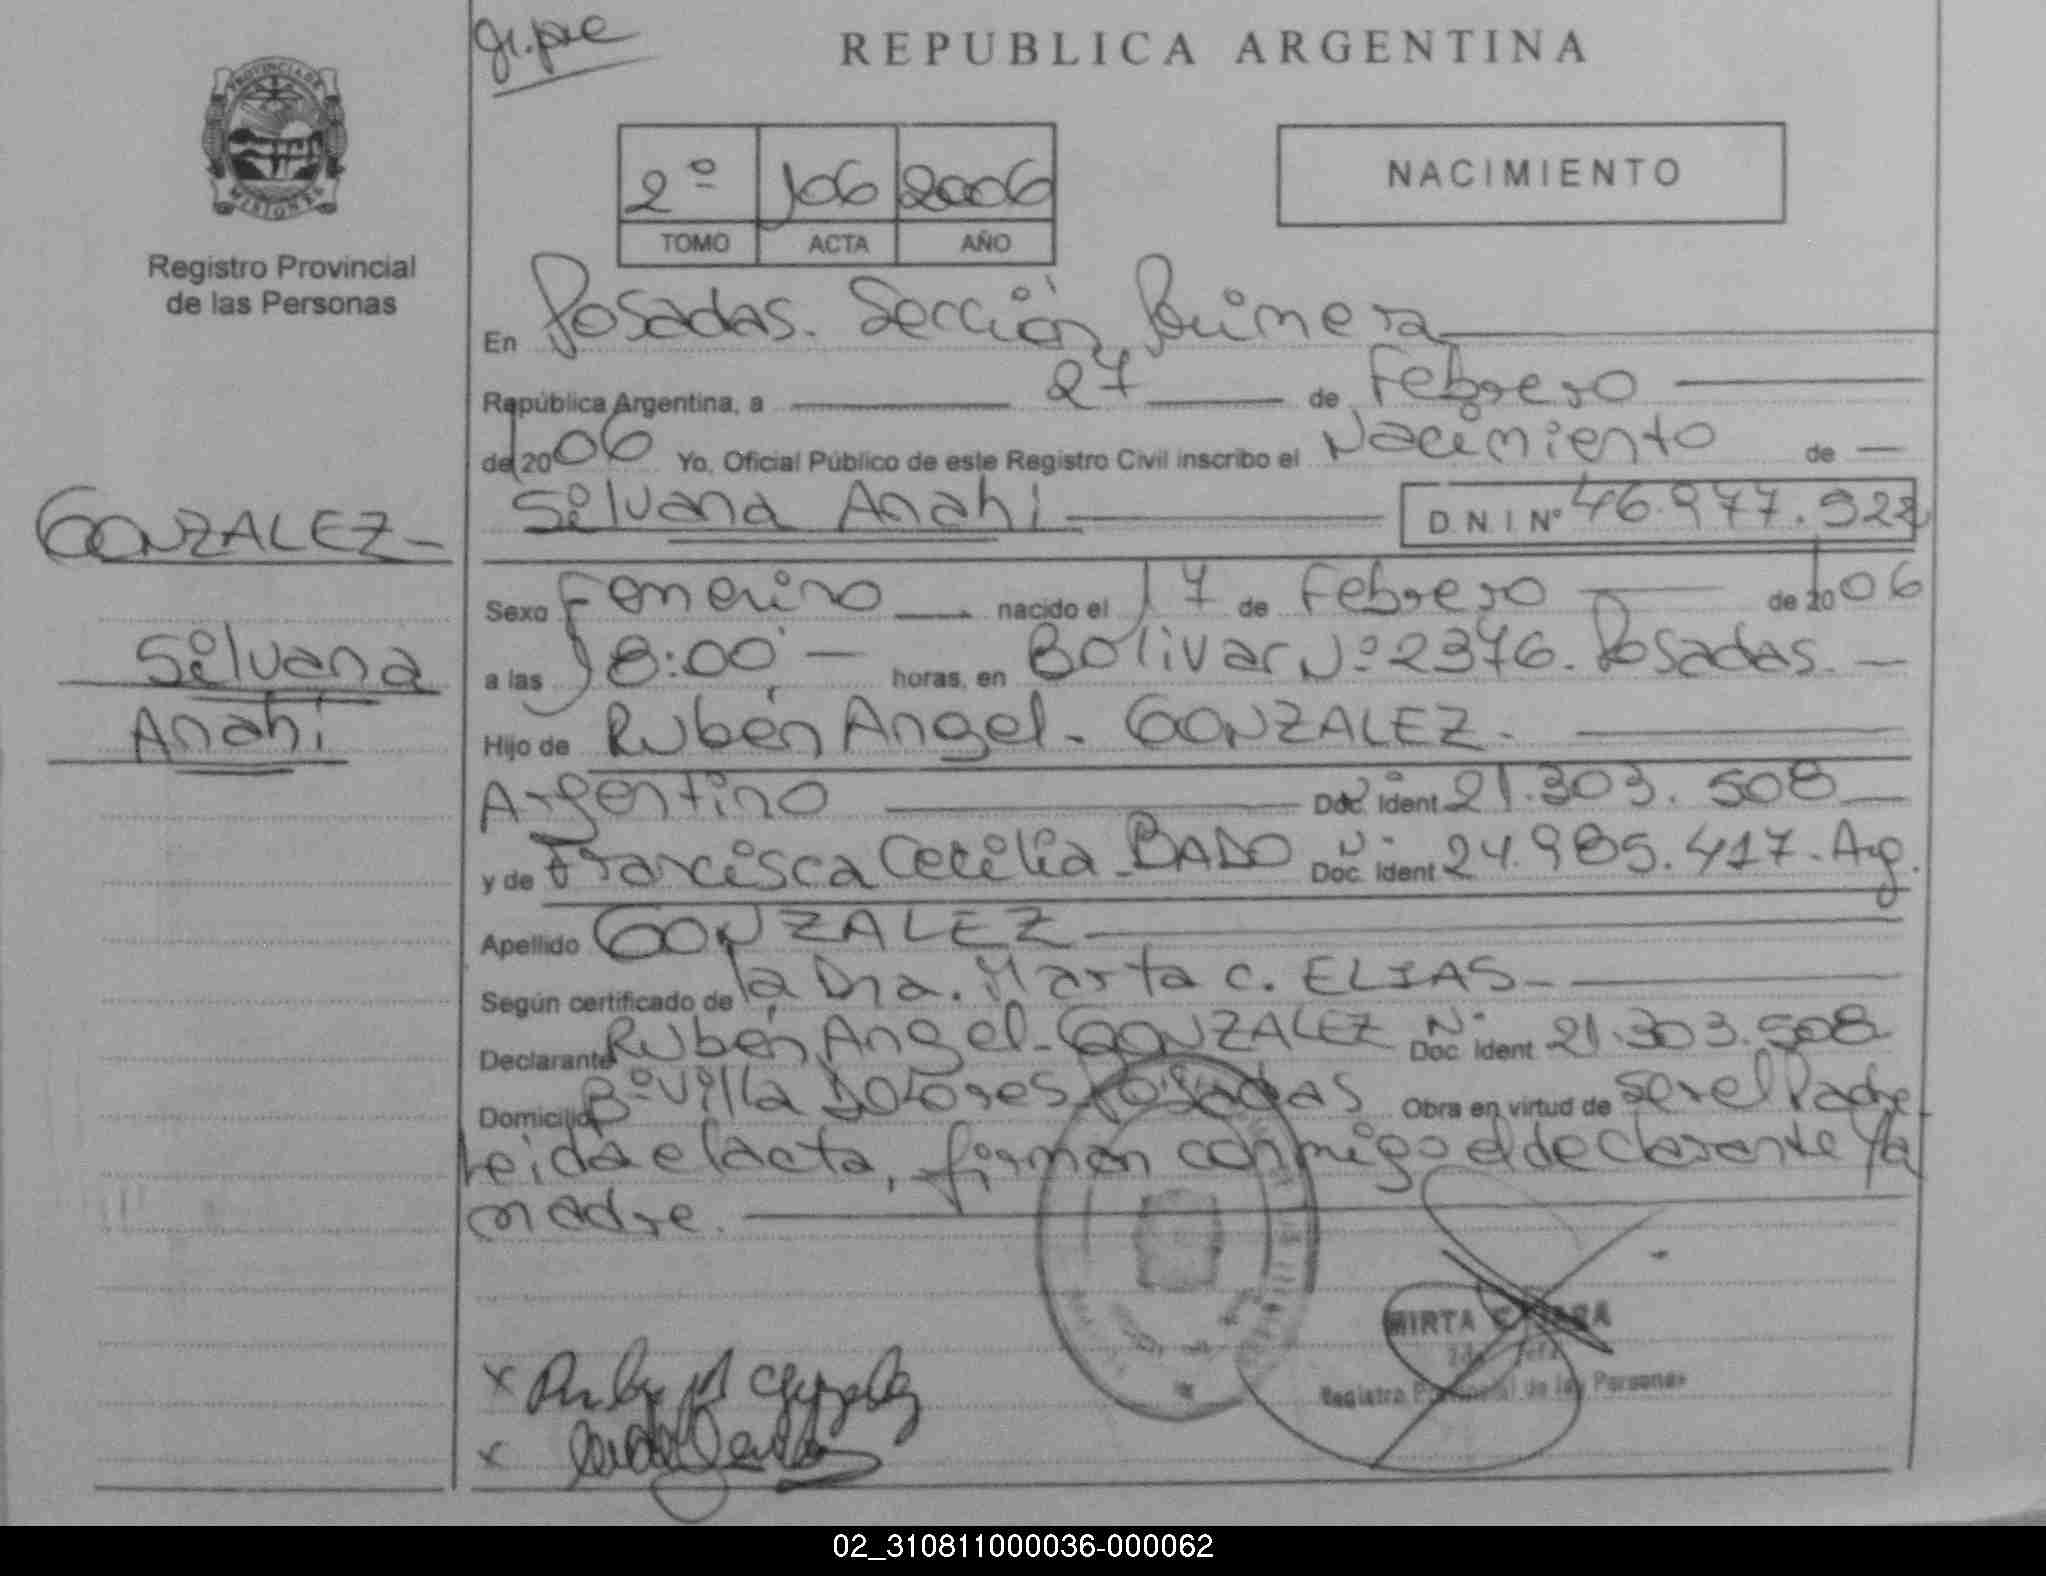 gr.pre
REPUBLICA ARGENTINA
PROVINCIA DE
MISIONES
Registro Provincial
de las Personas
2º 106 2006
TOMO ACTA AÑO
NACIMIENTO
En Posadas. Sección Primera
República Argentina, a 27 de Febrero
del 2006 Yo, Oficial Público de este Registro Civil inscribo el Nacimiento de
Silvana Anahi D N I Nº 46.977.922
GONZALEZ-
Silvana
Anahi
Sexo Femenino nacido el 17 de Febrero de 2006
a las 18:00 horas, en Bolivar Nº 2376. Posadas.
Hijo de Rubén Angel - GONZALEZ.
Argentino Doc. Ident Nº 21.303.508
y de Francisca Cecilia - BADO Doc. Ident Nº 24.985.417- Arg.
Apellido GONZALEZ
Según certificado de la Dra. Marta C. ELIAS-
Declarante Rubén Angel - GONZALEZ Doc. Ident Nº 21.303.508
Domicilio Bº Villa Dolores Posadas Obra en virtud de ser el Padre
Leida el acta, firman conmigo el declarante y la
madre.
MIRTA
Registro Provincial de las Personas
02_310811000036-000062